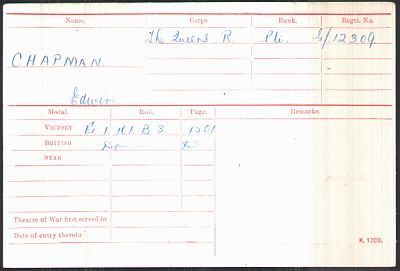 Name. Corps. Rank. Regtl. No.
The Queens R. Pte. G/12309
CHAPMAN
Edwin
Medal. Roll. Page. Remarks.
VICTORY E/1/101 B3 1501
BRITISH Do Do
STAR
Theatre of War first served in
Date of entry therein
K. 1380.